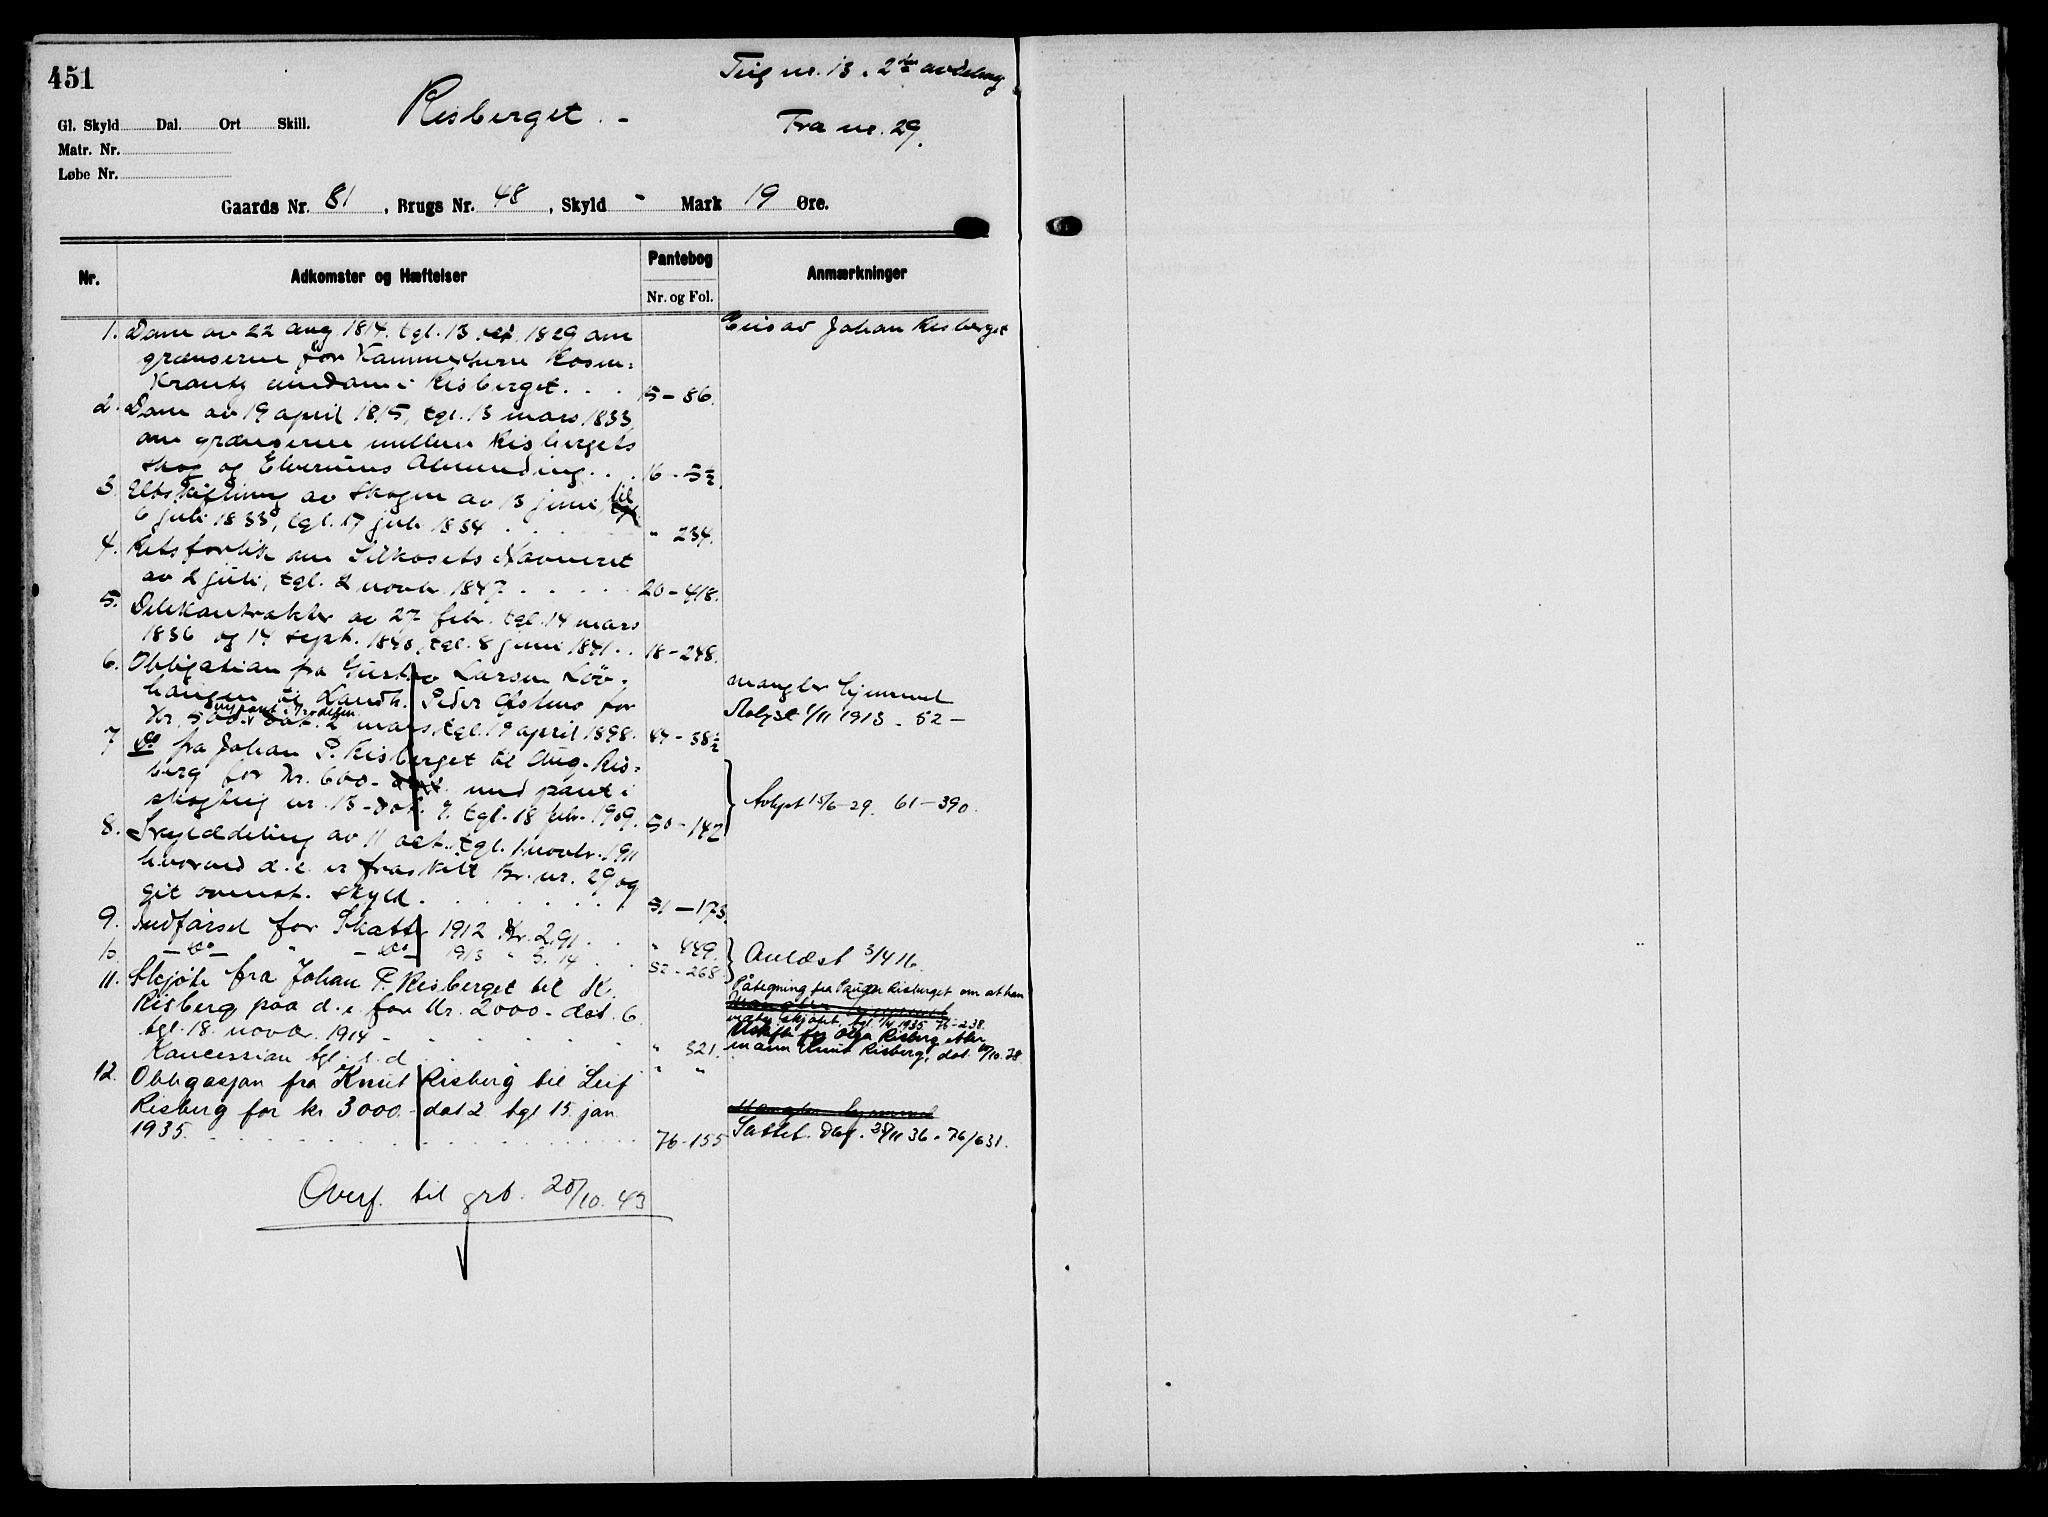 451
Teig nr. 13. 2den avdeling
Risberget. -
Fra nr. 29.
Gl. Skyld Dal. Ort Skill.
Matr. Nr.
Løbe Nr.
Gaards Nr. 81, Brugs Nr. 48, Skyld - Mark 19 Øre.
Nr. Adkomster og Hæftelser Pantebog Anmærkninger
Nr. og Fol.
1. Dom av 22 aug 1814, tgl. 13 1829 om Eies av Johan Risberget
grænserne for Kammerherre Rosen=
Krantz eiendom i Risberget. . . 15 - 86.
2. Dom av 19 april 1815, tgl. 13 mars 1833,
om grænserne mellem Risbergets
skog og Elverums Almending . . . 16 - 5½.
3. Utskiftning av skogen av 13 juni til
6 juli 1833, tgl. 17 juli 1834 . . . " 234.
4. Retsforlik om Silkosets Havneret
av 2 juli, tgl. 2 novbr. 1847. . . . 20 - 418.
5. Delekontrakter av 27 febr. tgl. 14 mars
1836 og 14 sept. 1840, tgl. 8 juni 1841. . 18 - 248.
6. Obligation fra Gustav Larsen Löv- mangler hjemmel
haugen til Landh. Peder for Avlyst 1/11 1913 - 52 -
Kr. 500. dat. 2 mars, tgl. 19 april 1898. 47 - 38½
7. do fra Johan P. Risberget til Aug. Ris=
berg for Kr. 600 - med pant i
skogteig nr. 13 - dat. 2, tgl. 18 febr. 1909. 50 - 142 Avlyst 15/6 - 29. 61 - 390.
8. Skylddeling av 11 oct., tgl. 1 novbr. 1911
hvorved d. e. er fraskilt Br. nr. 29 og
git ovenst. skyld. . . . 51 - 173.
9. Indførsel for Skatter 1912 Kr. 2.91. . . " 449.
10. - do - " - do - 1913 " 3.14 . . 52 - 268. Avlæst 3/4 16.
11. Skjøte fra Johan P. Risberget til K. Påtegning fra Risberget om at han
Risberg paa d. e. for Kr. 2000 - dat. 6. skjøtet, tgl. 1/4 1935 76 - 238.
tgl. 18. novbr. 1914 - . . . " 321. Uskifte for Olga Risberg etter
Koncession tgl. s. d. " " mann Knut Risberg, dat. 10. 38
12. Obligasjon fra Knut Risberg til Leif
Risberg for kr 3000. - dat 2 tgl 15. jan. Mangler hjemmel
1935. . . . 76 - 155 Slettet. 11 36 - 76/631.
Overf. til grb. 20/10. 43